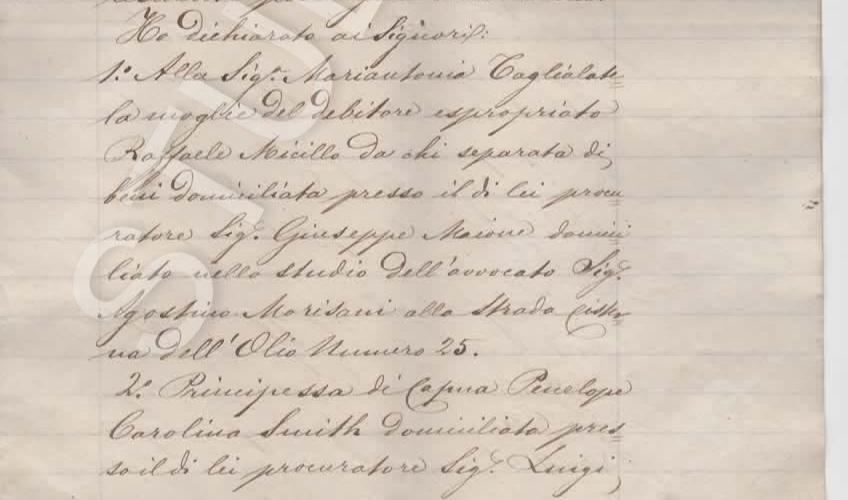 Ho dichiarato ai Signori:
1.º Alla Sig.ª Mariantonia Taglialate=
la moglie del debitore espropriato
Raffaele Micillo da chi separata di
beni domiciliata presso il di lei procu=
ratore Sig.r Giuseppe Maione domici=
liato nello studio dell'avvocato Sig.r
Agostino Marisani alla strada Cister=
na dell'Olio Numero 25.
2.º Principessa di Capua Penelope
Carolina Smith domiciliata pres=
so il di lei procuratore Sig.r Luigi